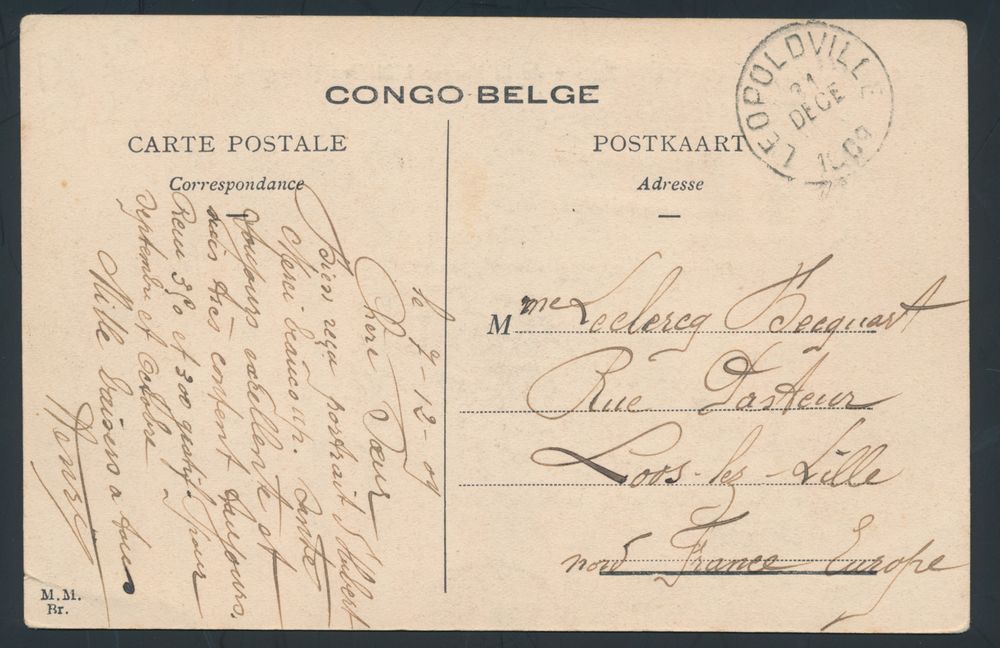 CONGO BELGE
CARTE POSTALE
POSTKAART
Correspondance
Adresse
LEOPOLDVILLE
31
DECE
09
le 7-12-09
Chère Sœur
Bien reçu portrait d'Hubert
Merci beaucoup. Santé
toujours excellente et
suis très content toujours.
Reçu 350 et 300 pour
Septembre et Octobre
Mille baisers a tous
Henry
Mme Leclercq Becquart
Rue Pasteur
Loos-lez-Lille
nord France Europe
M.M.
Br.